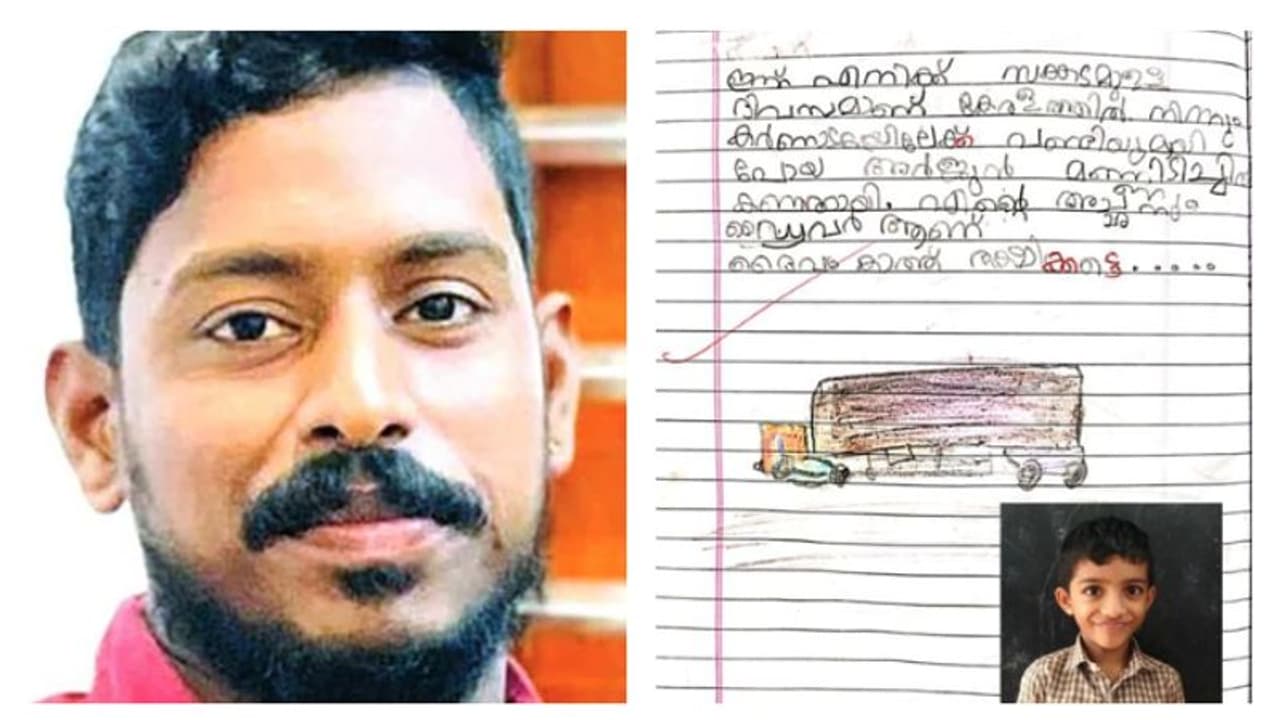 ഇന്ന് എനിക്ക് സങ്കടമുള്ള
ദിവസമാണ് കേരളത്തിൽ നിന്നും
കർണാടകയിലേക്ക് വണ്ടിയുമായി
പോയ അർജുൻ മണ്ണിടിച്ചിൽ
കാണാതായി. എന്റെ അച്ഛനും
ഡ്രൈവർ ആണ്
ദൈവം കാത്ത് രക്ഷിക്കട്ടെ......